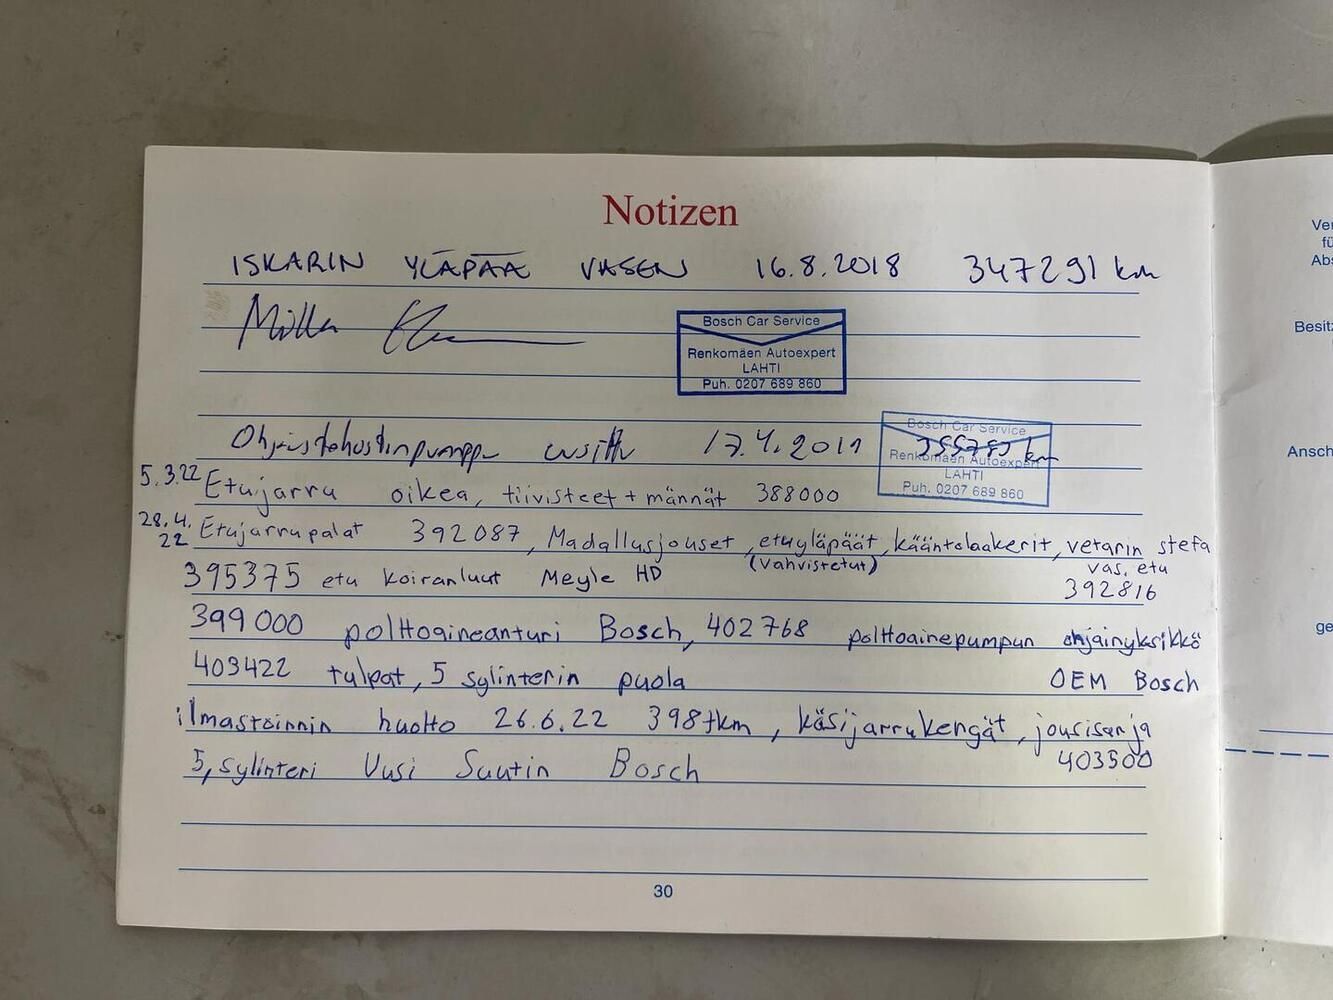 Notizen
ISKARIN YLÄPÄÄ VASEN 16.8.2018 347291 km
Bosch Car Service
Renkomäen Autoexpert
LAHTI
Puh. 0207 689 860
Ohjaustehostinpumppu uusittu 17.4.2019 km
Bosch Car Service
Renkomäen Autoexpert
LAHTI
Puh. 0207 689 860
5.3.22 Etujarru oikea, tiivisteet + männät 388000
28.4.22 Etujarrupalat 392087, Madallusjouset, etuyläpäät, kääntölaakerit, vetarin stefa
(vahvistetut) vas. etu
395375 etu koiranluut Meyle HD 392816
399000 polttoaineanturi Bosch, 402768 polttoainepumpun ohjainyksikkö
403422 tulpat, 5 sylinterin puola OEM Bosch
ilmastoinnin huolto 26.6.22 398tkm, käsijarrukengät, jousisarja
5, sylinteri Uusi Suutin Bosch 403500
30
Besitz
Ansch
ge